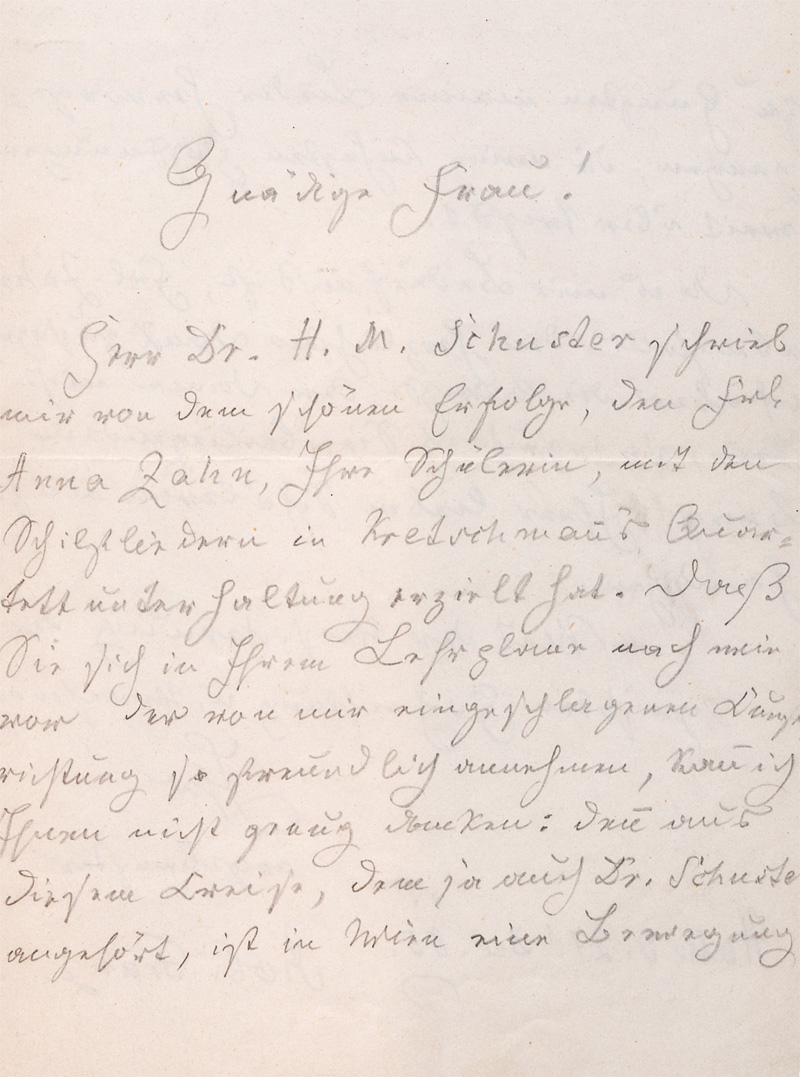 Gnädige Frau!
Herr Dr. H. M. Schuster schrieb
mir von dem schönen Erfolge, den Frl.
Anna Zahn, Ihre Schülerin, mit den
Schilfliedern in Kretschmann's Quar=
tettunterhaltung erzielt hat. Daß
Sie sich in Ihrem Lehrplane nach wie
vor der von mir eingeschlagenen Kunst
richtung so freundlich annehmen, kan̄ ich
Ihnen nicht genug danken: den̄ aus
diesem Kreise, dem ja auch Dr. Schuste
angehört, ist in Wien eine Bewegung